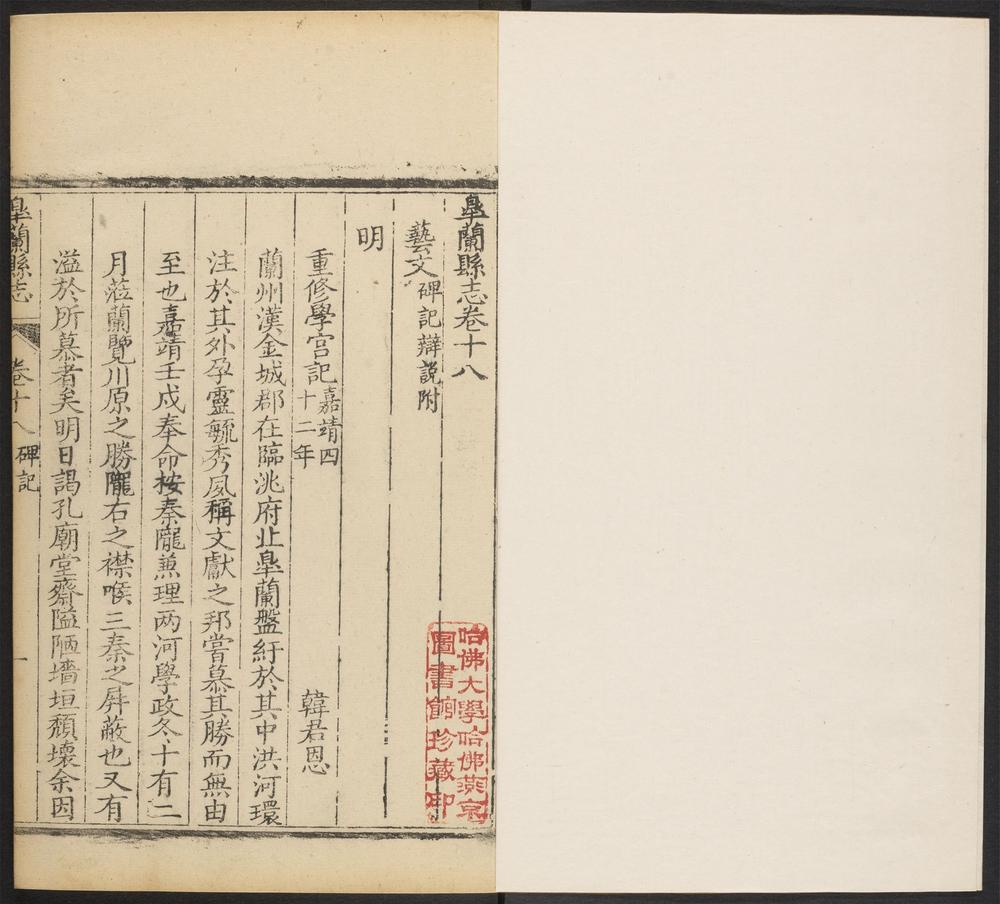 皐蘭縣志卷十八
藝文碑記辯説附
明
重修學宫記嘉靖四十二年 韓君恩
蘭州漢金城郡在臨洮府北皐蘭盤紆於其中洪河環
注於其外孕靈毓秀夙稱文獻之邦嘗慕其勝而無由
至也嘉靖壬戌奉命按秦隴兼理两河學政冬十有二
月蒞蘭覽川原之勝隴右之襟喉三秦之屏蔽也又有
溢於所慕者矣明日謁孔廟堂齋隘陋墻垣頹壞余因
皐蘭縣志 卷十八 碑記 一
哈佛大學哈佛燕京
圖書館珍藏印